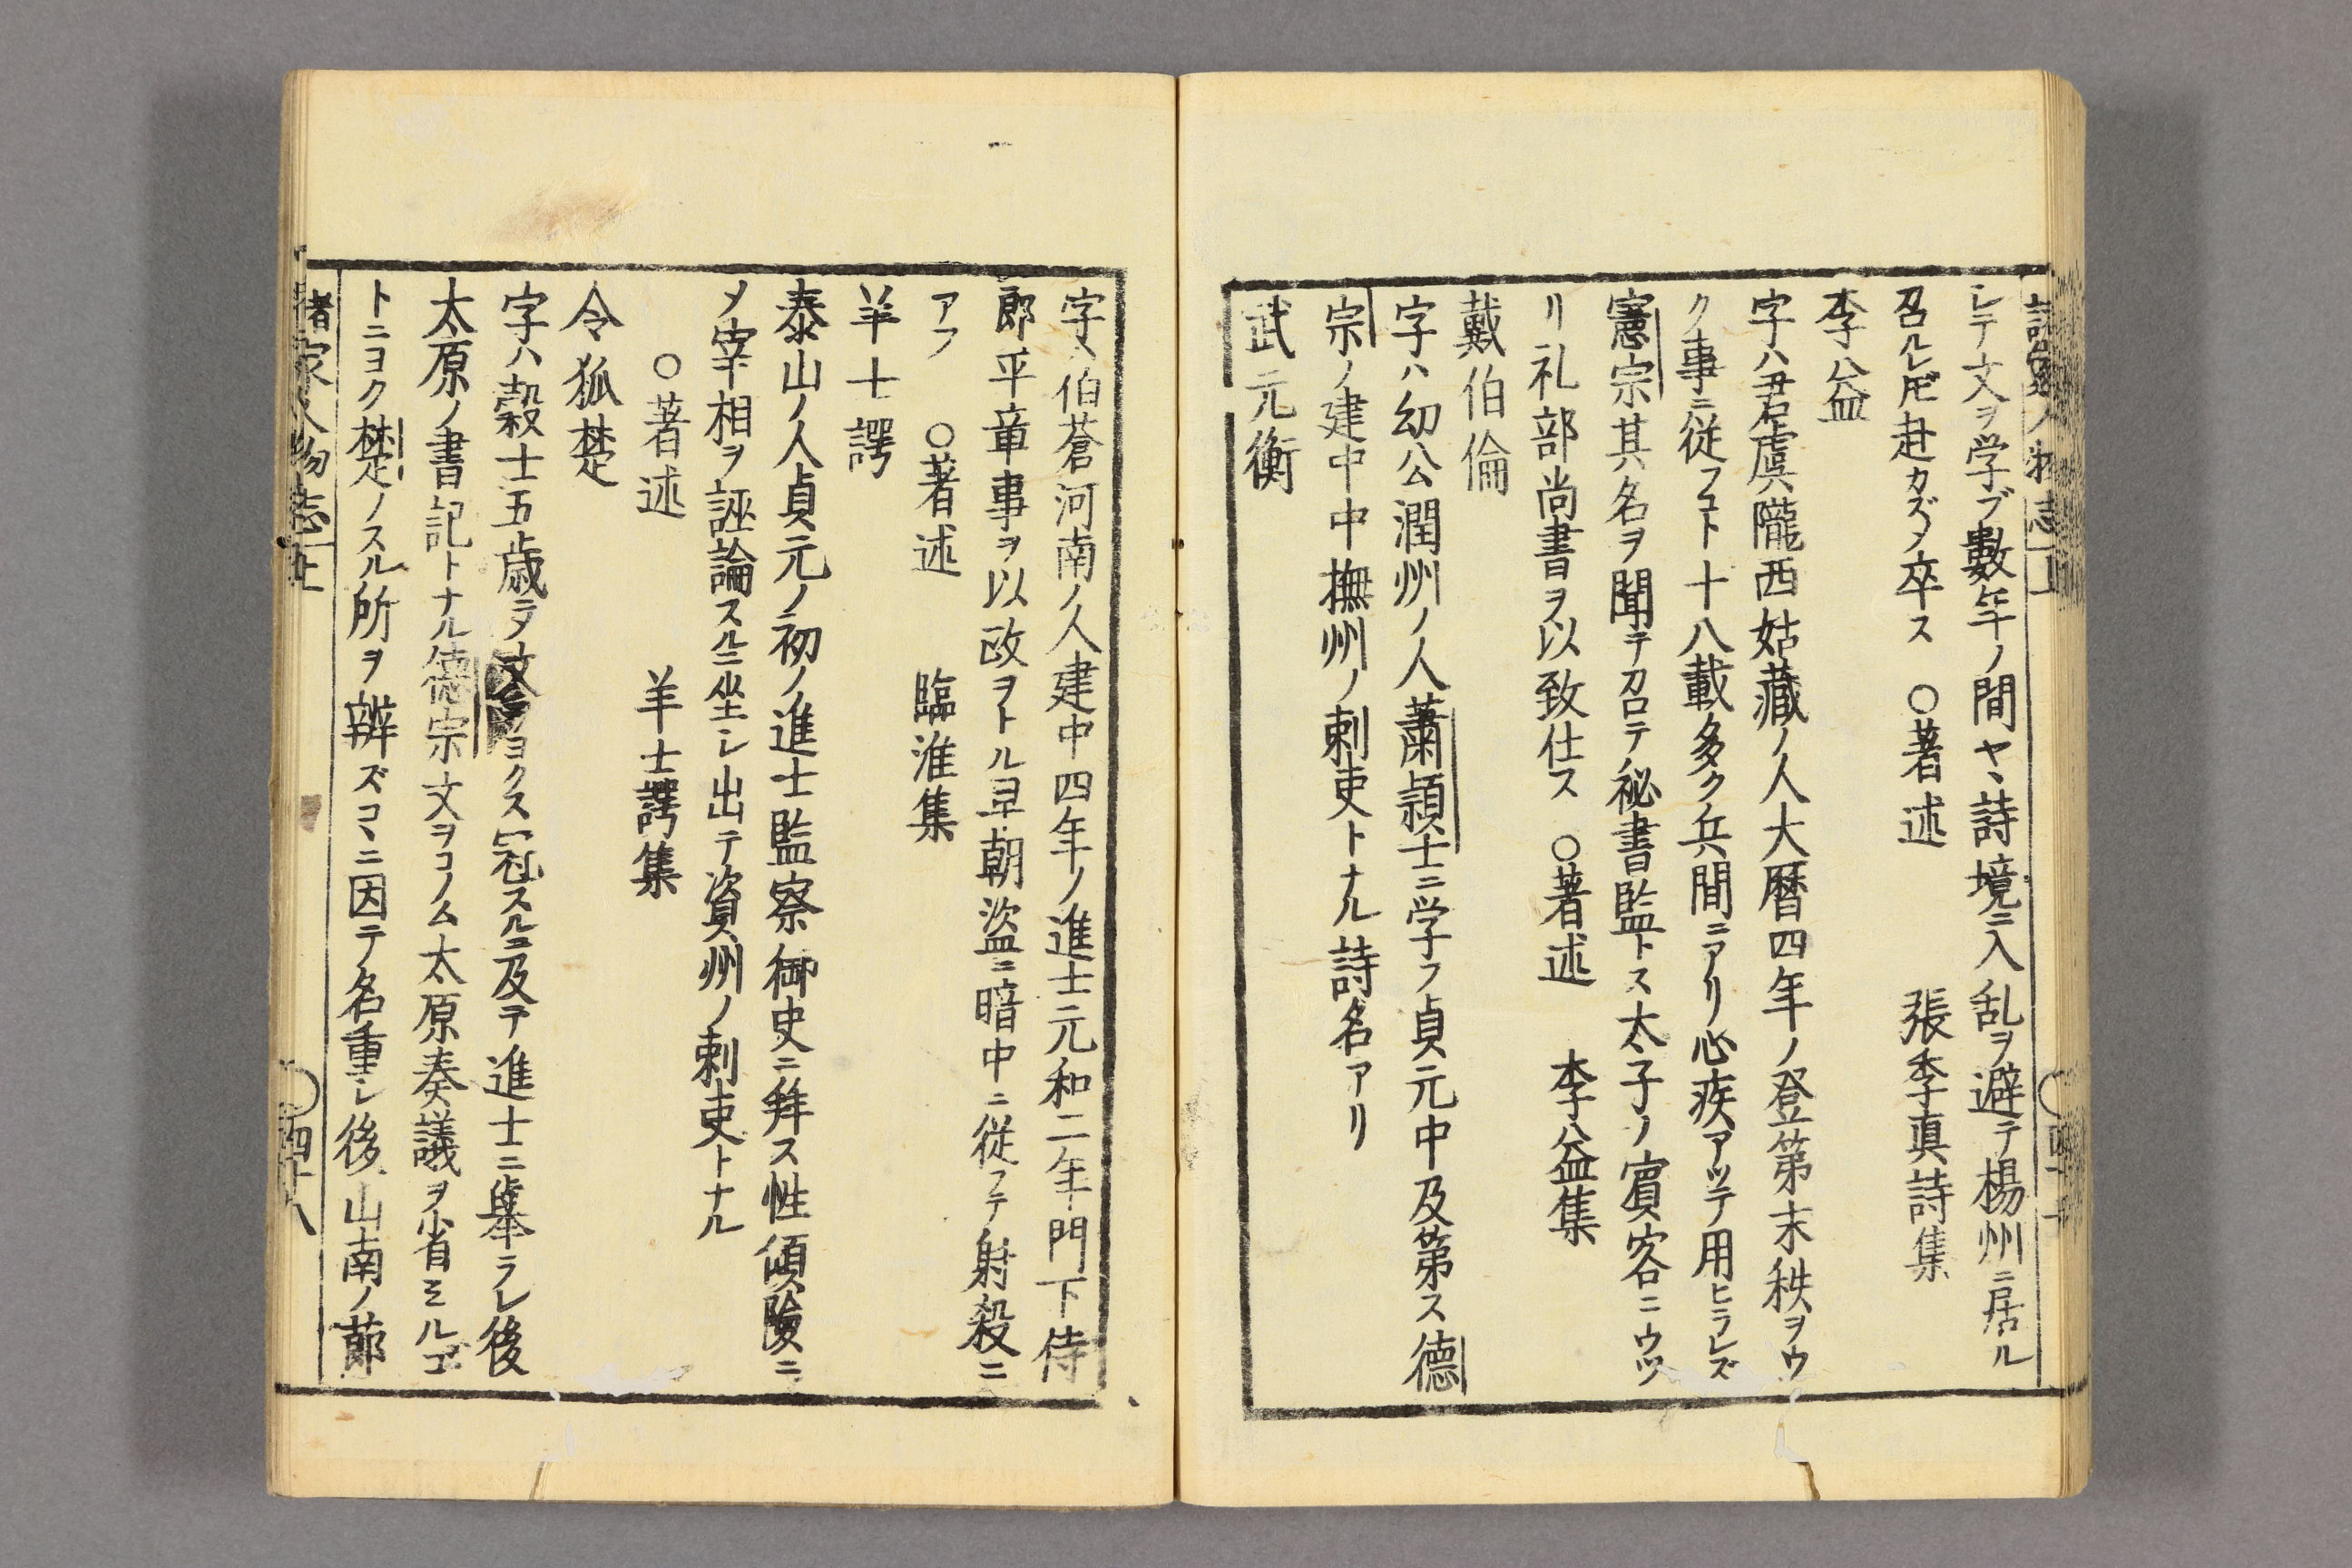 シテ文ヲ学ブ數年ノ間ヤヽ詩境ニ入乱ヲ避テ楊州ニ居ル
召ルレ𪜈赴カズノ卒ス　○著述　張季真詩集
李益
字ハ君虞隴西姑藏ノ人大暦四年ノ登第末秩ヲウ
ク事ニ従フヿト十八載多ク兵間ニアリ心疾アツテ用ヒラレズ
憲宗其名ヲ聞テ召テノ秘書監トス太子ノ賓客ニウツ
リ礼部尚書ヲ以致仕ス　○著述　李益集
戴伯倫
字ハ幼公潤州ノ人蕭頴士ニ学フ貞元中及第ス德
宗ノ建中中撫州ノ刺吏トナル詩名アリ
武元衡
字ハ伯蒼河南ノ人建中四年ノ進士元和二年門下侍
郎平章事ヲ以政ヲトル早朝盗ニ暗中ニ従フテ射殺ニ
アフ　○著述　臨淮集
羊士諤
泰山ノ人貞元ノ初ノ進士監察御史ニ拜ス性傾險ニ
メ宰相ヲ誣論スルニ坐シ出テ資州ノ刺吏トナル
○著述　羊士諤集
令狐楚
字ハ穀士五歳ニテ文ヲヨクス冠スルニ及テ進士ニ擧ラレ後
太原ノ書記トナル德宗文ヲコノム太原奏議ヲ省ミルゴ
トニヨク楚ノスル所ヲ辨ズコヽニ因テ名重シ後山南ノ節
諸家人物志 四十八